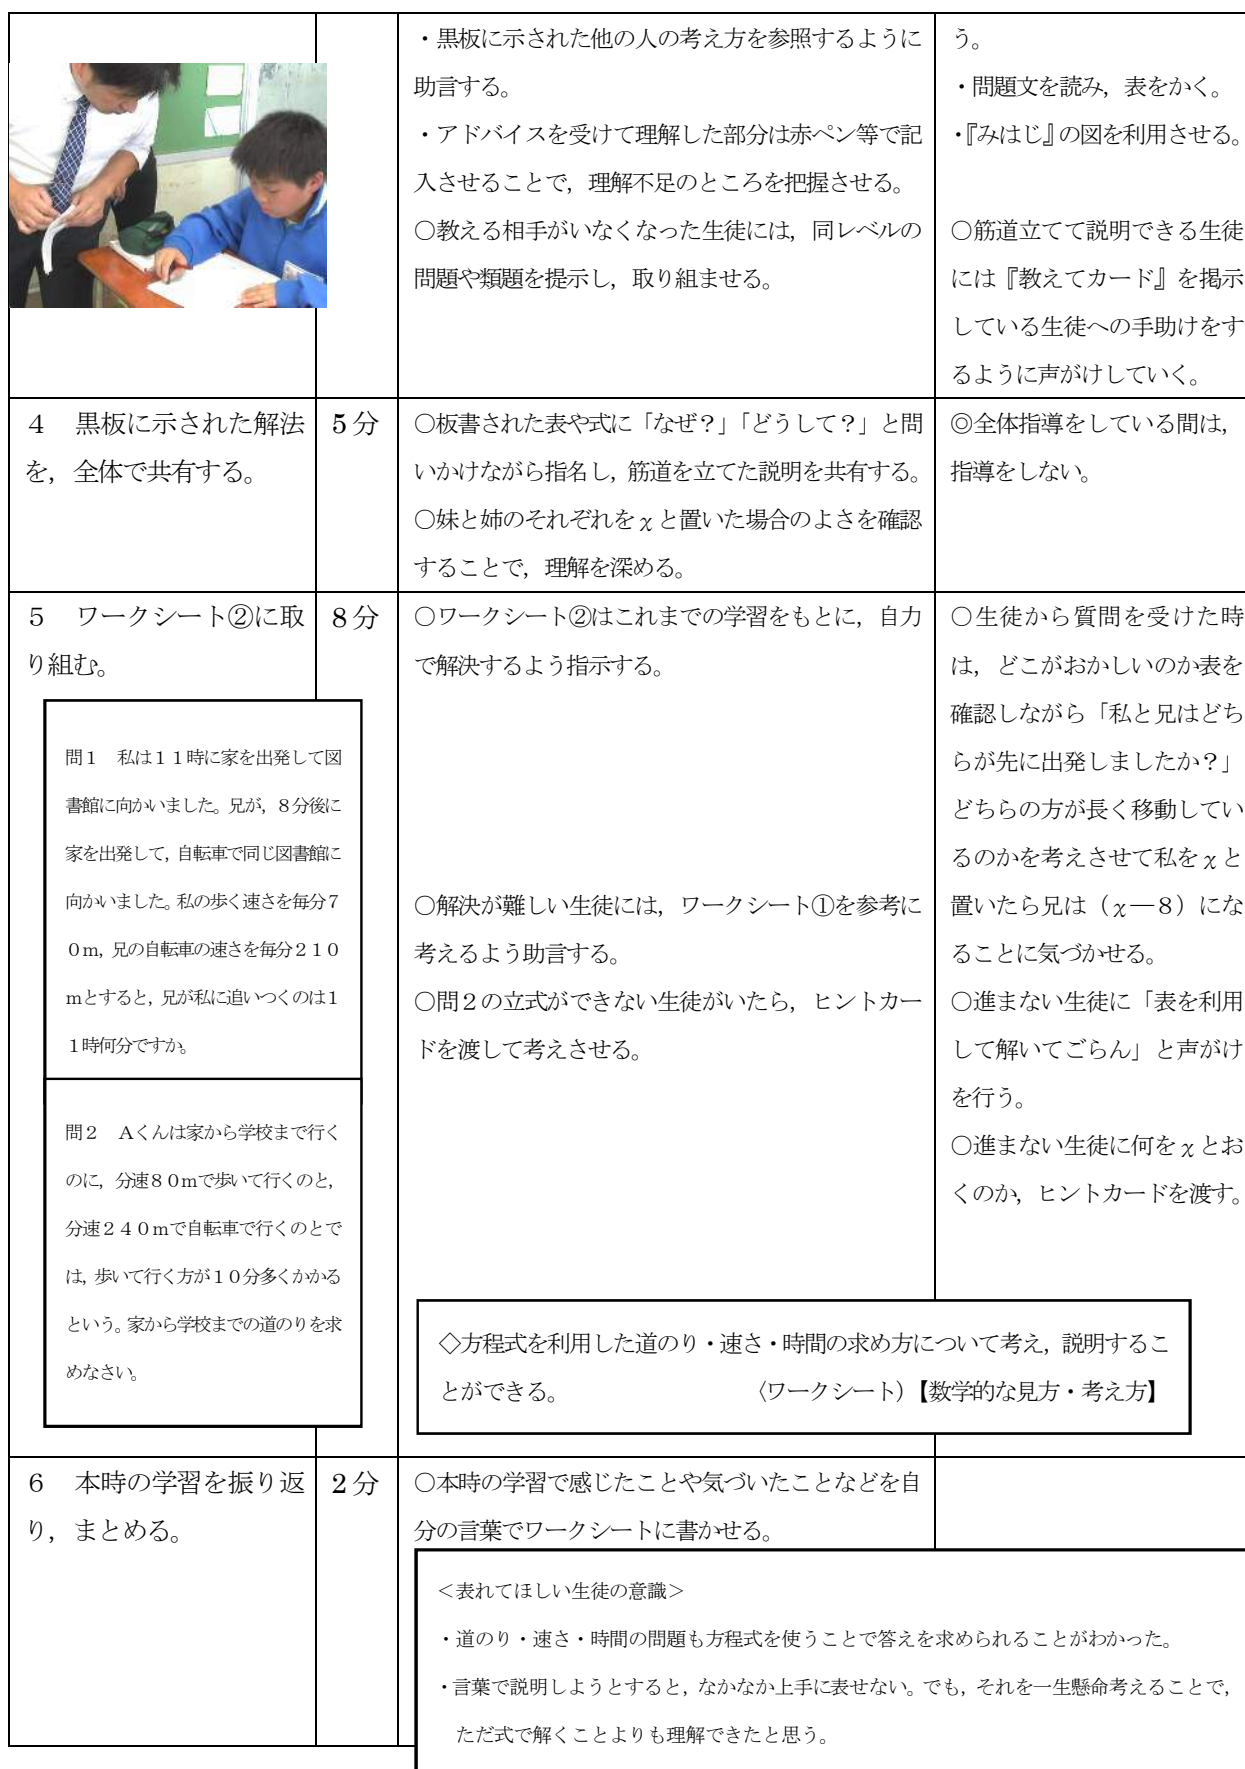 ・黒板に示された他の人の考え方を参照するように
助言する。
・アドバイスを受けて理解した部分は赤ペン等で記
入させることで，理解不足のところを把握させる。
○教える相手がいなくなった生徒には，同レベルの
問題や類題を提示し，取り組ませる。
う。
・問題文を読み，表をかく。
・『みはじ』の図を利用させる。
○筋道立てて説明できる生徒
には『教えてカード』を掲示
している生徒への手助けをす
るように声がけしていく。
４　黒板に示された解法
を，全体で共有する。
5分
○板書された表や式に「なぜ？」「どうして？」と問
いかけながら指名し，筋道を立てた説明を共有する。
○妹と姉のそれぞれをχと置いた場合のよさを確認
することで，理解を深める。
◎全体指導をしている間は，
指導をしない。
５　ワークシート②に取
り組む。
8分
問１　私は１１時に家を出発して図
書館に向かいました。兄が，８分後に
家を出発して，自転車で同じ図書館に
向かいました。私の歩く速さを毎分７
０ｍ，兄の自転車の速さを毎分２１０
ｍとすると，兄が私に追いつくのは１
１時何分ですか。
問２　Ａくんは家から学校まで行く
のに，分速８０ｍで歩いて行くのと，
分速２４０ｍで自転車で行くのとで
は，歩いて行く方が１０分多くかかる
という。家から学校までの道のりを求
めなさい。
○ワークシート②はこれまでの学習をもとに，自力
で解決するよう指示する。
○解決が難しい生徒には，ワークシート①を参考に
考えるよう助言する。
○問２の立式ができない生徒がいたら，ヒントカー
ドを渡して考えさせる。
○生徒から質問を受けた時
は，どこがおかしいのか表を
確認しながら「私と兄はどち
らが先に出発しましたか？」
どちらの方が長く移動してい
るのかを考えさせて私をχと
置いたら兄は（χ―８）にな
ることに気づかせる。
○進まない生徒に「表を利用
して解いてごらん」と声がけ
を行う。
○進まない生徒に何をχとお
くのか，ヒントカードを渡す。
◇方程式を利用した道のり・速さ・時間の求め方について考え，説明するこ
とができる。　　　〈ワークシート）【数学的な見方・考え方】
６　本時の学習を振り返
り，まとめる。
2分
○本時の学習で感じたことや気づいたことなどを自
分の言葉でワークシートに書かせる。
＜表れてほしい生徒の意識＞
・道のり・速さ・時間の問題も方程式を使うことで答えを求められることがわかった。
・言葉で説明しようとすると，なかなか上手に表せない。でも，それを一生懸命考えることで，
ただ式で解くことよりも理解できたと思う。